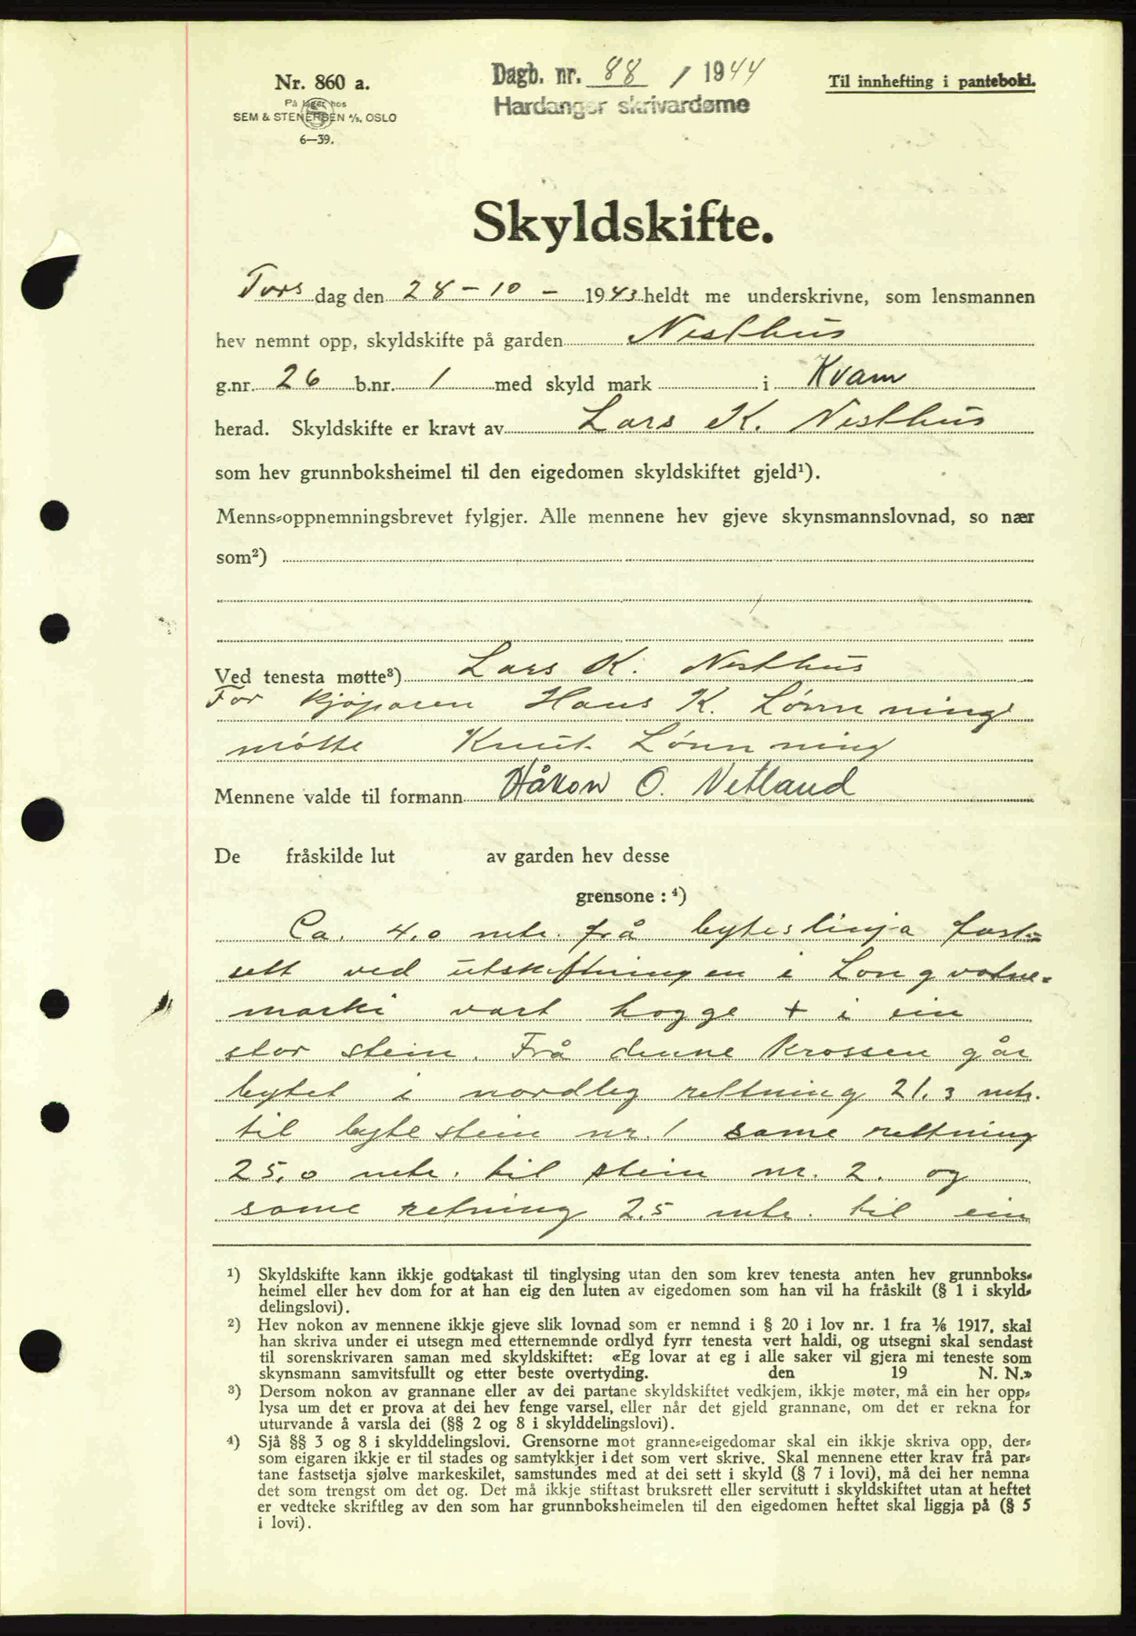 Nr. 860 a.
På lager hos
SEM & STENERSEN A/S. OSLO
6—39.
Dagb. nr. 88 / 1944
Hardanger skrivardøme
Til innhefting i pantebok.
Skyldskifte.
Tors dag den 28 - 10 - 1943 heldt me underskrivne, som lensmannen
hev nemnt opp, skyldskifte på garden Nesthus
g.nr. 26 b.nr. 1 med skyld mark i Kvam
herad. Skyldskifte er kravt av Lars K. Nesthus
som hev grunnboksheimel til den eigedomen skyldskiftet gjeld¹).
Menns-oppnemningsbrevet fylgjer. Alle mennene hev gjeve skynsmannslovnad, so nær
som²)
Ved tenesta møtte³) Lars K. Nesthus
For kjøparen Hans K. Lønnning
møtte Knut Lønnning
Mennene valde til formann Håkon O. Vetland
De fråskilde lut av garden hev desse
grensone : ⁴)
Ca. 4.0 mtr. frå byteslinja fast=
sett ved utskiftningen i Longvotne=
marki vart hogge + i ein
stor stein. Frå denne krossen går
bytet i nordleg rettning 21.3 mtr.
til bytestein nr. 1 same rettning
25,0 mtr. til stein nr. 2. og
same retning 2.5 mtr. til ein
¹) Skyldskifte kann ikkje godtakast til tinglysing utan den som krev tenesta anten hev grunnboks-
heimel eller hev dom for at han eig den luten av eigedomen som han vil ha fråskilt (§ 1 i skyld-
delingslovi).
²) Hev nokon av mennene ikkje gjeve slik lovnad som er nemnd i § 20 i lov nr. 1 fra 1/6 1917, skal
han skriva under ei utsegn med etternemnde ordlyd fyrr tenesta vert haldi, og utsegni skal sendast
til sorenskrivaren saman med skyldskiftet: «Eg lovar at eg i alle saker vil gjera mi teneste som
skynsmann samvitsfullt og etter beste overtyding. den 19 N. N.»
³) Dersom nokon av grannane eller av dei partane skyldskiftet vedkjem, ikkje møter, må ein her opp-
lysa um det er prova at dei hev fenge varsel, eller når det gjeld grannane, om det er rekna for
uturvande å varsla dei (§§ 2 og 8 i skylddelingslovi).
⁴) Sjå §§ 3 og 8 i skylddelingslovi. Grensorne mot granne-eigedomar skal ein ikkje skriva opp, der-
som eigaren ikkje er til stades og samtykkjer i det som vert skrive. Skal mennene etter krav frå par-
tane fastsetja sjølve markeskilet, samstundes med at dei sett i skyld (§ 7 i lovi), må dei her nemna
det som trengst om det og. Det må ikkje stiftast bruksrett eller servitutt i skyldskiftet utan at heftet
er vedteke skriftleg av den som har grunnboksheimelen til den eigedomen heftet skal liggja på (§ 5
i lovi).